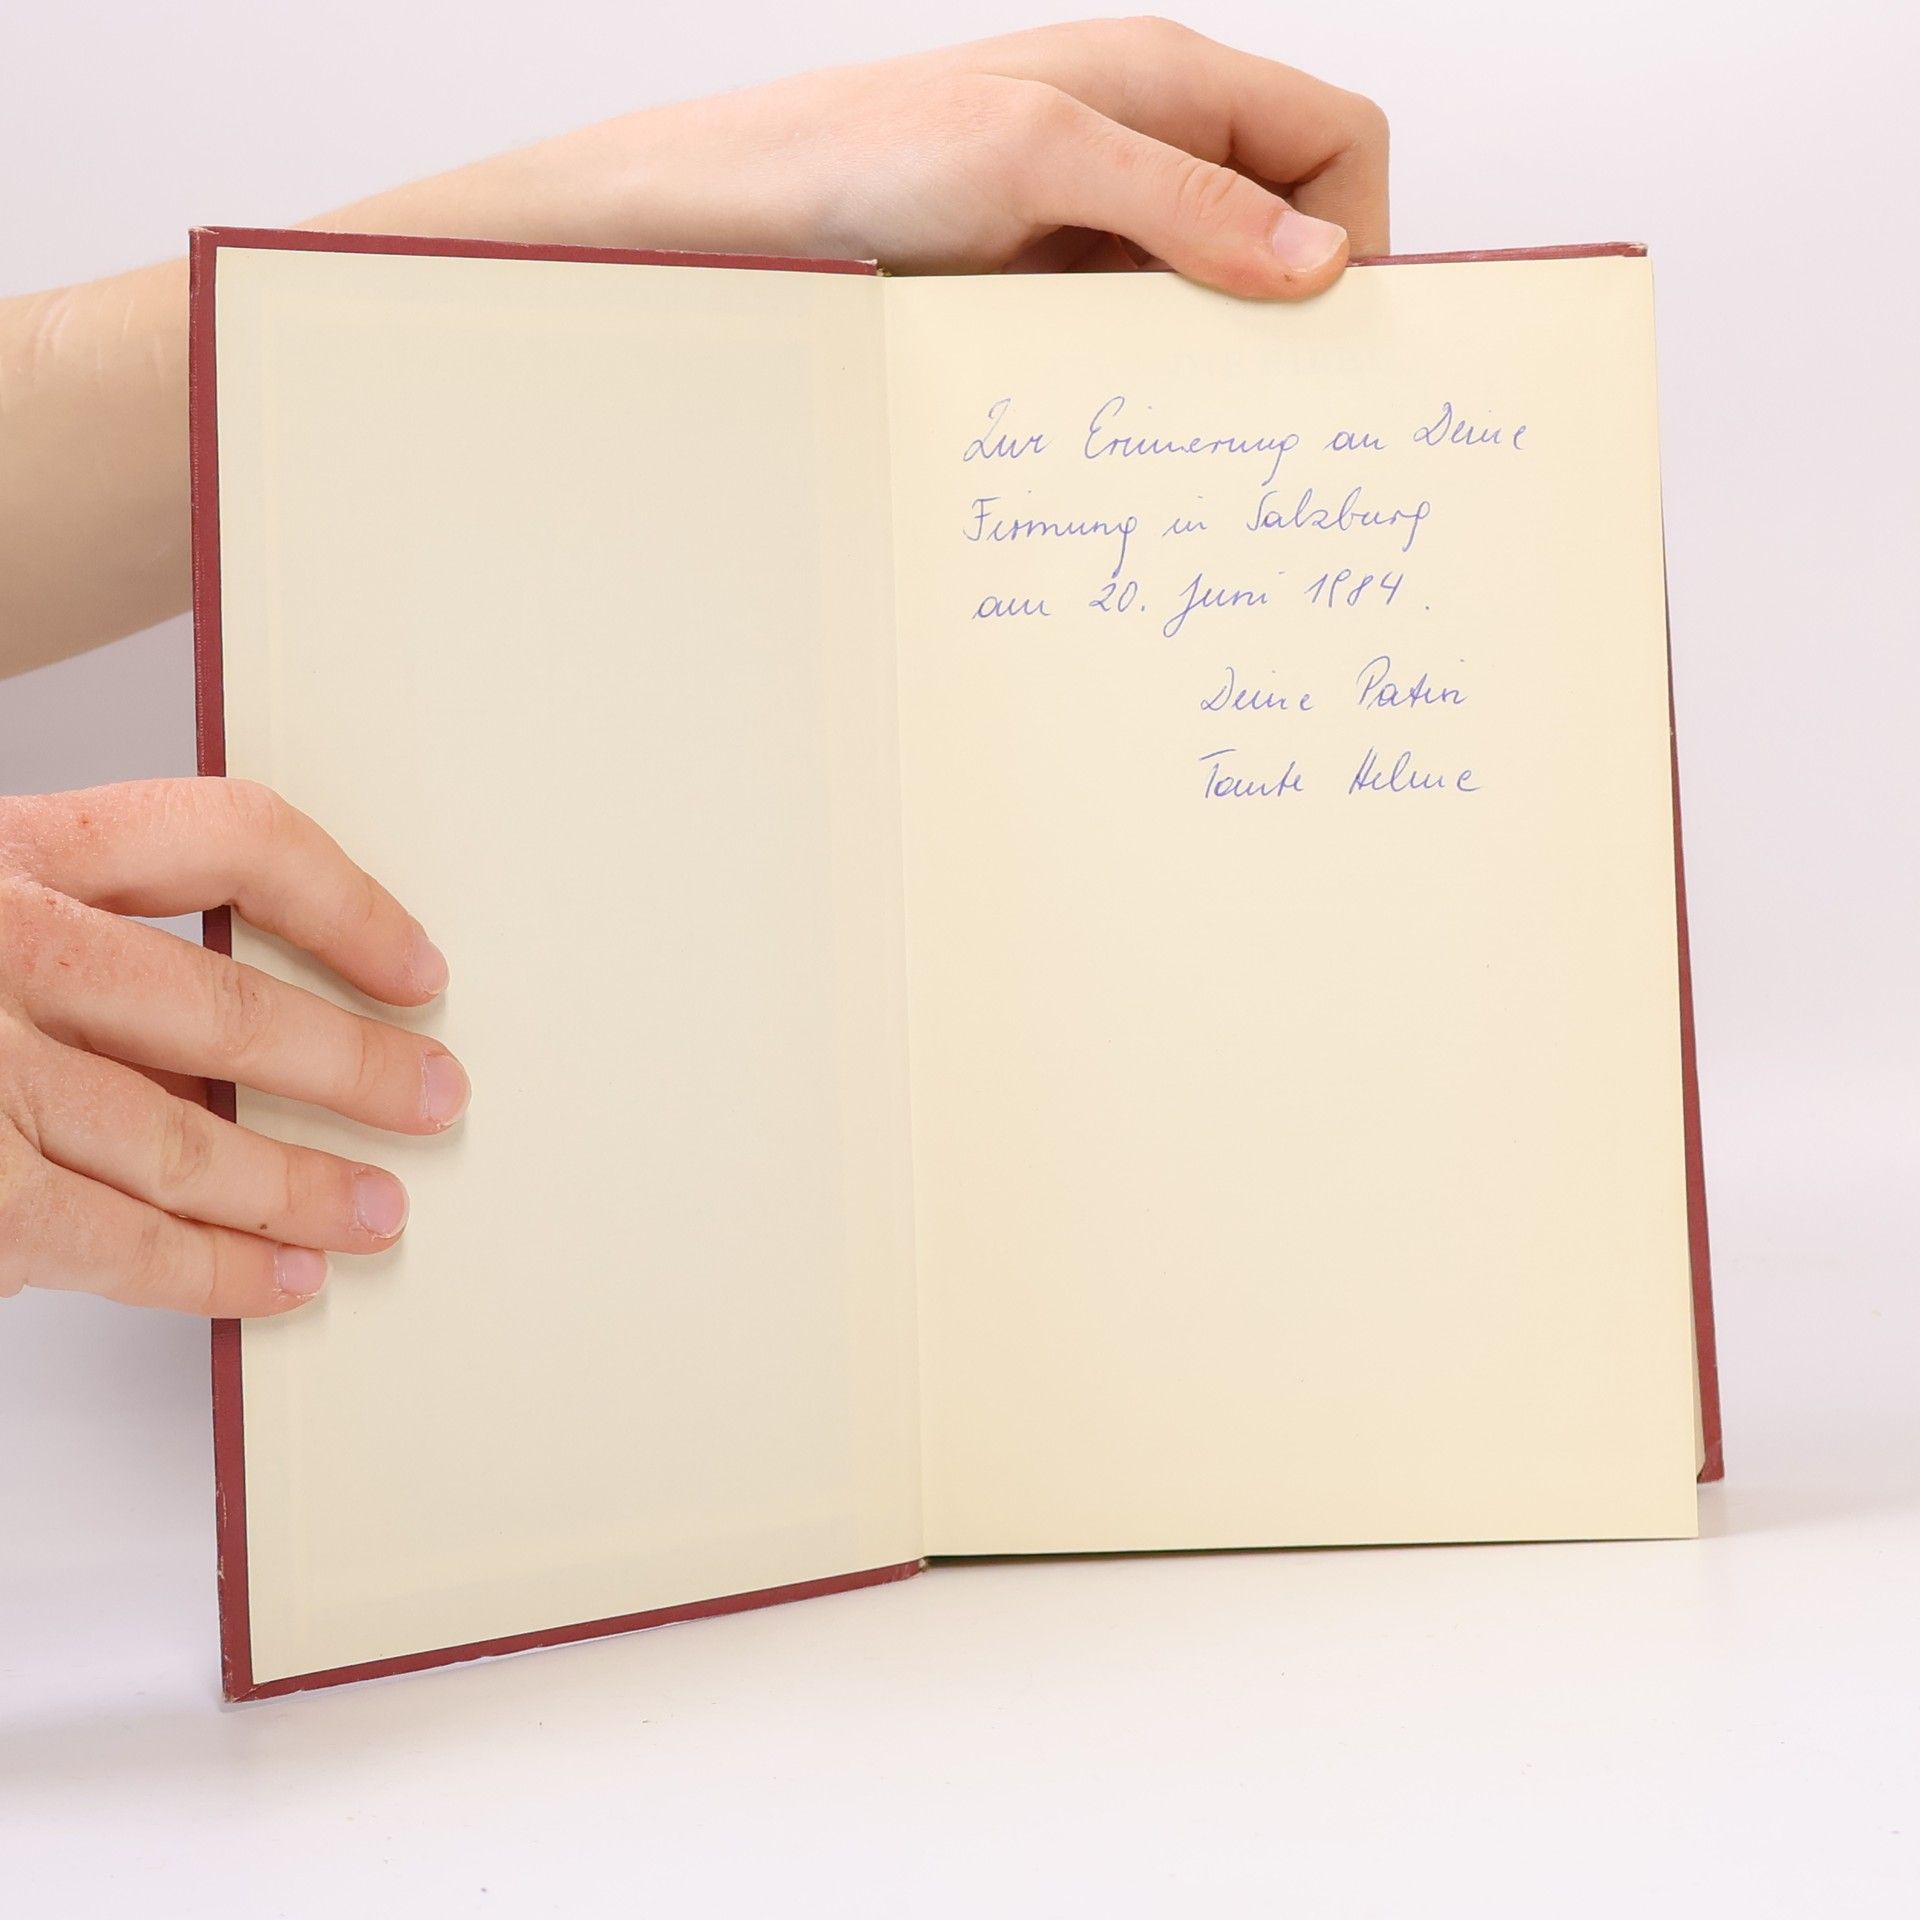 Zur Erinnerung an Deine
Firmung in Salzburg
am 20. Juni 1984.
Deine Patin
Tante Helme